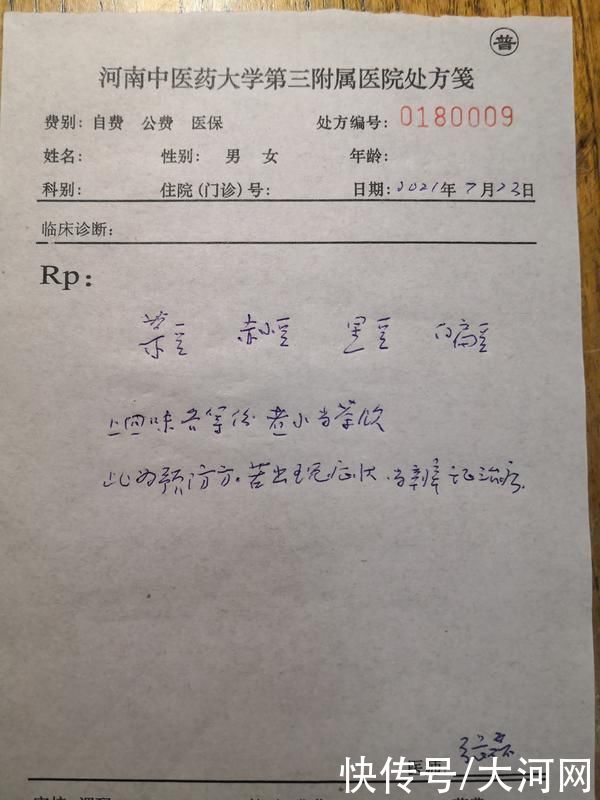 普
河南中医药大学第三附属医院处方笺
费别: 自费 公费 医保 处方编号: 0180009
姓名: 性别: 男 女 年龄:
科别: 住院(门诊)号: 日期: 2021年7月23日
临床诊断:
Rp:
赤小豆 黑豆 白扁豆
上四味各等份 煮水当茶饮
此为预防方。若出现症状,当辨证治疗。
医师
快传号/大河网